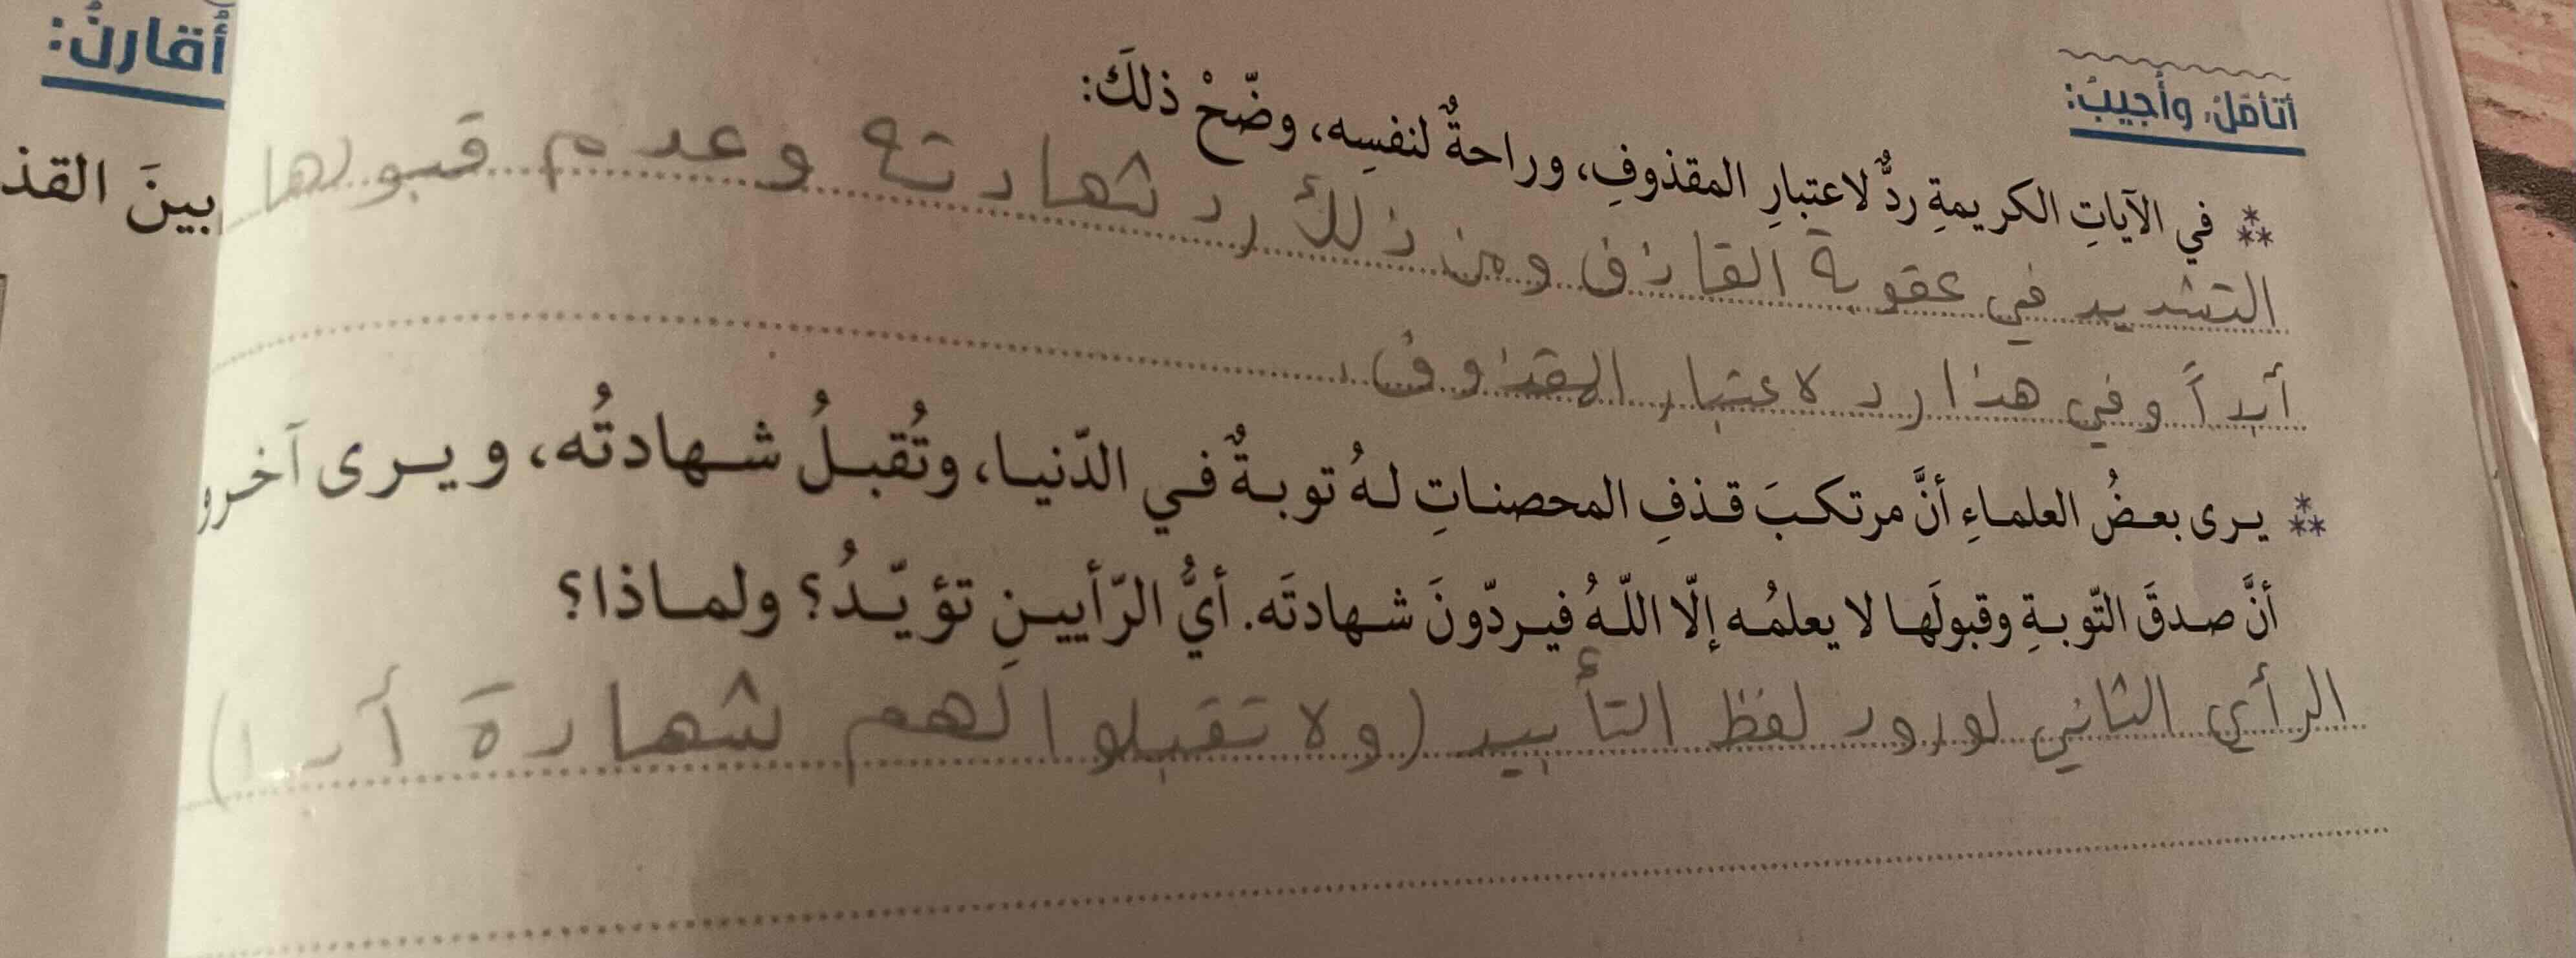 أتأمّلُ، وأجيبُ:
⁂ في الآياتِ الكريمةِ ردٌّ لاعتبارِ المقذوفِ، وراحةٌ لنفسِه، وضّحْ ذلكَ:
التشديد في عقوبة القاذف ومن ذلك رد شهادته وعدم قبولها
أبداً وفي هذا رد لاعتبار المقذوف.
⁂ يرى بعضُ العلماءِ أنَّ مرتكبَ قذفِ المحصناتِ لهُ توبةٌ في الدّنيا، وتُقبلُ شهادتُه، ويرى آخرو
أنَّ صدقَ التّوبةِ وقبولَها لا يعلمُه إلّا اللّهُ فيردّونَ شهادتَه. أيُّ الرّأيينِ تؤيّدُ؟ ولماذا؟
الرأي الثاني لورود لفظ التأبيد (ولا تقبلوا لهم شهادة أبدا)
أُقارنُ:
بينَ القذ